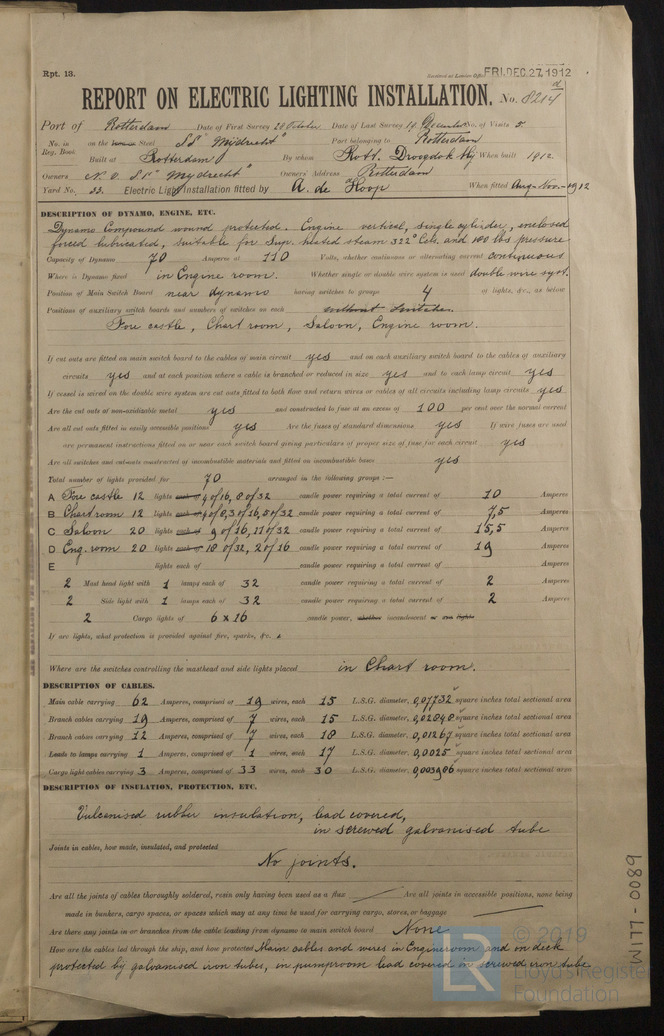 Rpt. 13.
Received at London Office FRI. DEC. 27. 1912
REPORT ON ELECTRIC LIGHTING INSTALLATION. No. 8214
Port of Rotterdam Date of First Survey 20 October Date of Last Survey 19 December No. of Visits 5.
No. in Reg. Book. on the Iron or Steel SS "Mijdrecht" Port belonging to Rotterdam
Built at Rotterdam By whom Rott. Droogdok Mij When built 1912.
Owners N.V. SS "Mydrecht" Owners' Address Rotterdam
Yard No. 33. Electric Light Installation fitted by A. de Hoop When fitted Aug-Nov-1912
DESCRIPTION OF DYNAMO, ENGINE, ETC.
Dynamo Compound wound protected. Engine vertical, single cylinder, enclosed
forced lubricated, suitable for Sup. heated steam 322° Cels. and 180 lbs pressure
Capacity of Dynamo 70 Amperes at 110 Volts, whether continuous or alternating current continuous
Where is Dynamo fixed in Engine room. Whether single or double wire system is used double wire syst.
Position of Main Switch Board near dynamo having switches to groups 4 of lights, &c., as below
Positions of auxiliary switch boards and numbers of switches on each without switches.
Fore castle, Chart room, Saloon, Engine room.
If cut outs are fitted on main switch board to the cables of main circuit yes and on each auxiliary switch board to the cables of auxiliary
circuits yes and at each position where a cable is branched or reduced in size yes and to each lamp circuit yes
If vessel is wired on the double wire system are cut outs fitted to both flow and return wires or cables of all circuits including lamp circuits yes
Are the cut outs of non-oxidizable metal yes and constructed to fuse at an excess of 100 per cent over the normal current
Are all cut outs fitted in easily accessible positions yes Are the fuses of standard dimensions yes If wire fuses are used
are permanent instructions fitted on or near each switch board giving particulars of proper size of fuse for each circuit yes
Are all switches and cut-outs constructed of incombustible materials and fitted on incombustible bases yes
Total number of lights provided for 70 arranged in the following groups :—
A Fore castle 12 lights each of 4 of 16, 8 of 32 candle power requiring a total current of 10 Amperes
B Chart room 12 lights each of 4 of 8, 3 of 16, 5 of 32 candle power requiring a total current of 7,5 Amperes
C Saloon 20 lights each of 9 of 16, 11 of 32 candle power requiring a total current of 15,5 Amperes
D Eng. room 20 lights each of 18 of 32, 2 of 16 candle power requiring a total current of 19 Amperes
E lights each of candle power requiring a total current of Amperes
2 Mast head light with 1 lamps each of 32 candle power requiring a total current of 2 Amperes
2 Side light with 1 lamps each of 32 candle power requiring a total current of 2 Amperes
2 Cargo lights of 6 x 16 candle power, whether incandescent or arc lights
If arc lights, what protection is provided against fire, sparks, &c.
Where are the switches controlling the masthead and side lights placed in Chart room.
DESCRIPTION OF CABLES.
Main cable carrying 62 Amperes, comprised of 19 wires, each 15 L.S.G. diameter, 0,07732 square inches total sectional area
Branch cables carrying 19 Amperes, comprised of 7 wires, each 15 L.S.G. diameter, 0,02848 square inches total sectional area
Branch cables carrying 12 Amperes, comprised of 7 wires, each 18 L.S.G. diameter, 0,01267 square inches total sectional area
Leads to lamps carrying 1 Amperes, comprised of 1 wires, each 17 L.S.G. diameter, 0,0025 square inches total sectional area
Cargo light cables carrying 3 Amperes, comprised of 33 wires, each 30 L.S.G. diameter, 0,003986 square inches total sectional area
DESCRIPTION OF INSULATION, PROTECTION, ETC.
Vulcanised rubber insulation, lead covered,
in screwed galvanised tube
Joints in cables, how made, insulated, and protected
No joints.
Are all the joints of cables thoroughly soldered, resin only having been used as a flux Are all joints in accessible positions, none being
made in bunkers, cargo spaces, or spaces which may at any time be used for carrying cargo, stores, or baggage
Are there any joints in or branches from the cable leading from dynamo to main switch board None
How are the cables led through the ship, and how protected Main cables and wires in Engineroom and on deck
protected by galvanised iron tubes, in pumproom lead covered in screwed iron tube
MILL-0089
© 2019
LR
Lloyd's Register
Foundation